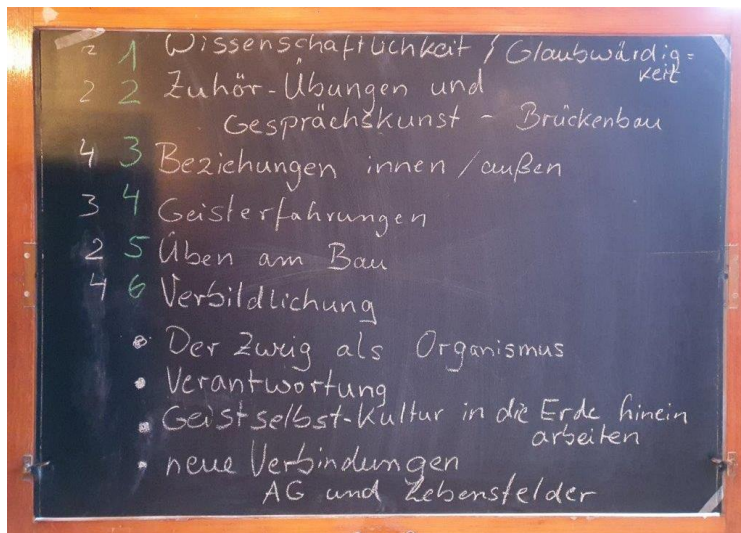 2 1 Wissenschaftlichkeit / Glaubwürdig=
keit
2 2 Zuhör-Übungen und
Gesprächskunst - Brückenbau
4 3 Beziehungen innen/außen
3 4 Geisterfahrungen
2 5 Üben am Bau
4 6 Verbildlichung
• Der Zweig als Organismus
• Verantwortung
• Geistselbst-Kultur in die Erde hinein
arbeiten
• neue Verbindungen
AG und Lebensfelder